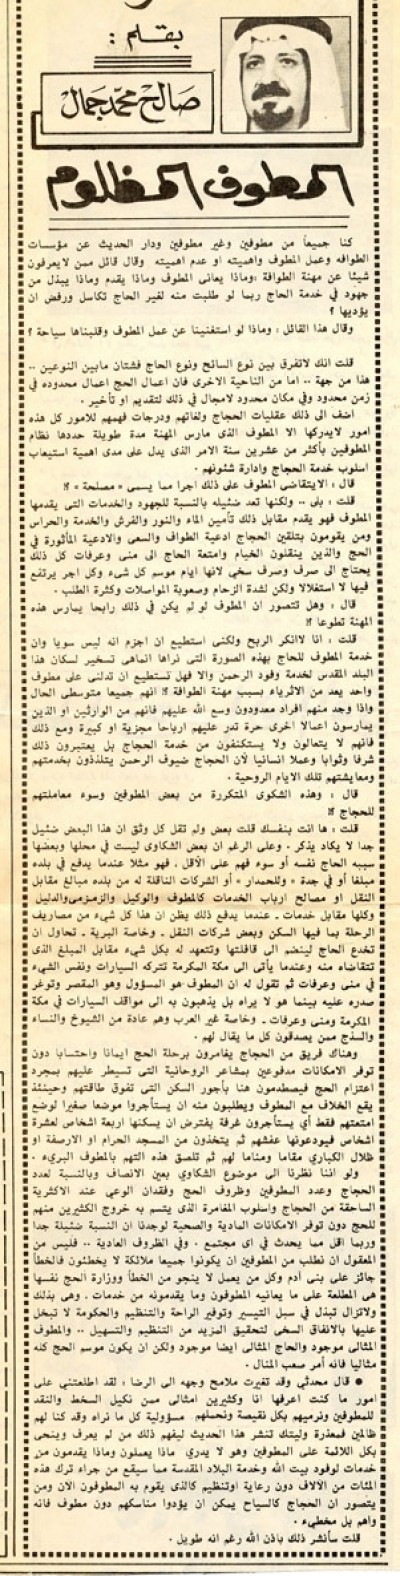 بقلم :
صالح محمد جمال
المطوف المظلوم
كنا جميعاً من مطوفين وغير مطوفين ودار الحديث عن مؤسسات
الطوافه وعمل المطوف واهميته او عدم اهميته وقال قائل ممن لايعرفون
شيئا عن مهنة الطوافة : وماذا يعانى المطوف وماذا يقدم وماذا يبذل من
جهود في خدمة الحاج ربما لو طلبت منه لغير الحاج تكاسل ورفض ان
يؤديها ؟
وقال هذا القائل : وماذا لو استغنينا عن عمل المطوف وقلبناها سياحة ؟
قلت انك لاتفرق بين نوع السائح ونوع الحاج فشتان مابين النوعين ..
هذا من جهة .. اما من الناحية الاخرى فان اعمال الحج اعمال محدوده في
زمن محدود وفي مكان محدود لامجال في ذلك لتقديم او تأخير .
اضف الى ذلك عقليات الحجاج ولغاتهم ودرجات فهمهم للامور كل هذه
امور لايدركها الا المطوف الذى مارس المهنة مدة طويلة حددها نظام
المطوفين بأكثر من عشرين سنة الامر الذى يدل على مدى اهمية استيعاب
اسلوب خدمة الحجاج وادارة شئونهم .
قال : الايتقاضى المطوف على ذلك اجرا مما يسمى « مصلحة » ؟!
قلت : بلى .. ولكنها تعد ضئيله بالنسبة للجهود والخدمات التى يقدمها
المطوف فهو يقدم مقابل ذلك تأمين الماء والنور والفرش والخدمة والحراس
ومن يقومون بتلقين الحجاج ادعية الطواف والسعى والادعية المأثورة في
الحج والذين ينقلون الخيام وامتعة الحاج الى منى وعرفات كل ذلك
يحتاج الى صرف وصرف سخي لانها ايام موسم كل شىء وكل اجر يرتفع
فيها لا استغلالا ولكن لشدة الزحام وصعوبة المواصلات وكثرة الطلب .
قال : وهل تتصور ان المطوف لو لم يكن في ذلك رابحا يمارس هذه
المهنة تطوعا ؟!
قلت : انا لاانكر الربح ولكنى استطيع ان اجزم انه ليس سويا وان
خدمة المطوف للحاج بهذه الصورة التى نراها انماهى تسخير لسكان هذا
البلد المقدس لخدمة وفود الرحمن والا فهل تستطيع ان تدلنى على مطوف
واحد يعد من الاثرياء بسبب مهنة الطوافة ؟! انهم جميعا متوسطى الحال
واذا وجد منهم افراد معدودون وسع الله عليهم فانهم من الوارثين او الذين
يمارسون اعمالا اخرى حرة تدر عليهم ارباحا مجزية او كبيرة ومع ذلك
فانهم لا يتعالون ولا يستنكفون من خدمة الحجاج بل يعتبرون ذلك
شرفا وثوابا وعملا انسانيا لأن الحجاج ضيوف الرحمن يتلذذون بخدمتهم
ومعايشتهم تلك الايام الروحية .
قال : وهذه الشكوى المتكررة من بعض المطوفين وسوء معاملتهم
للحجاج ؟!
قلت : ها انت بنفسك قلت بعض ولم تقل كل وثق ان هذا البعض ضئيل
جدا لا يكاد يذكر . وعلى الرغم ان بعض الشكاوى ليست في محلها وبعضها
سببه الحاج نفسه أو سوء فهم على الأقل . فهو مثلا عندما يدفع في بلده
مبلغا أو في جدة « وللحمدار » أو الشركات الناقلة له من بلده مبالغ مقابل
النقل او مصالح ارباب الخدمات كالمطوف والوكيل والزمزمى والدليل
وكلها مقابل خدمات . عندما يدفع ذلك يظن ان هذا كل شيء من مصاريف
الرحلة بما فيها السكن وبعض شركات النقل . وخاصة البرية . تحاول ان
تخدع الحاج لينضم الى قافلتها وتتعهد له بكل شيء مقابل المبلغ الذى
تتقاضاه منه وعندما يأتى الى مكة المكرمة تتركه السيارات ونفس الشيء
في منى وعرفات ثم تقول له ان المطوف هو المسؤول وهو المقصر وتوغر
صدره عليه بينما هو لا يراه بل يذهبون به الى مواقف السيارات في مكة
المكرمة ومنى وعرفات . وخاصة غير العرب وهم عادة من الشيوخ والنساء
والسذج ممن يصدقون كل ما يقال لهم .
وهناك فريق من الحجاج يغامرون برحلة الحج ايمانا واحتسابا دون
توفر الامكانات مدفوعين بمشاعر الروحانية التى تسيطر عليهم بمجرد
اعتزام الحج فيصطدمون هنا بأجور السكن التى تفوق طاقتهم وحينئذ
يقع الخلاف مع المطوف ويطلبون منه ان يستأجروا موضعا صغيرا لوضع
امتعتهم فقط أي يستأجرون غرفة يفترض ان يسكنها اربعة اشخاص لعشرة
اشخاص فيودعونها عفشهم ثم يتخذون من المسجد الحرام او الارصفة او
ظلال الكباري مقاما ومناما لهم ثم تلصق هذه التهم بالمطوف البريء .
ولو اننا نظرنا الى موضوع الشكاوي بعين الانصاف وبالنسبة لعدد
الحجاج وعدد المطوفين وظروف الحج وفقدان الوعي عند الاكثرية
الساحقة من الحجاج واسلوب المغامرة الذى يتسم به خروج الكثيرين منهم
للحج دون توفر الامكانات المادية والصحية لوجدنا ان النسبة ضئيلة جدا
وربما اقل مما يحدث في اى مجتمع . وفي الظروف العادية .. فليس من
المعقول ان نطلب من المطوفين ان يكونوا جميعا ملائكة لا يخطئون فالخطأ
جائز على بنى آدم وكل من يعمل لا ينجو من الخطأ ووزارة الحج نفسها
هى المطلعة على ما يعانيه المطوفون وما يقدمونه من خدمات . وهى بذلك
ولاتزال تبذل في سبل التيسير وتوفير الراحة والتنظيم والحكومة لا تبخل
عليها بالانفاق السخى لتحقيق المزيد من التنظيم والتسهيل .. والمطوف
المثالى موجود والحاج المثالى ايضا موجود ولكن ان يكون موسم الحج كله
مثاليا فانه أمر صعب المنال .
● قال محدثي وقد تغيرت ملامح وجهه الى الرضا : لقد اطلعتني على
امور ما كنت اعرفها انا وكثيرين امثالى ممن نكيل السخط والنقد
للمطوفين ونرميهم بكل نقيصة ونحملهم مسؤولية كل ما نراه وقد كنا لهم
ظالمين فمعذرة وليتك تنشر هذا الحديث ليفهم ذلك من لم يعرف وينحى
بكل اللائمة على المطوفين وهو لا يدري ماذا يعملون وماذا يقدمون من
خدمات لوفود بيت الله وخدمة البلاد المقدسة مما سيقع من جراء ترك هذه
المئات من الآلاف دون رعاية اوتنظيم كالذى يقوم به المطوفون الان ومن
يتصور ان الحجاج كالسياح يمكن ان يؤدوا مناسكهم دون مطوف فانه
واهم بل مخطىء .
قلت سأنشر ذلك باذن الله رغم انه طويل .